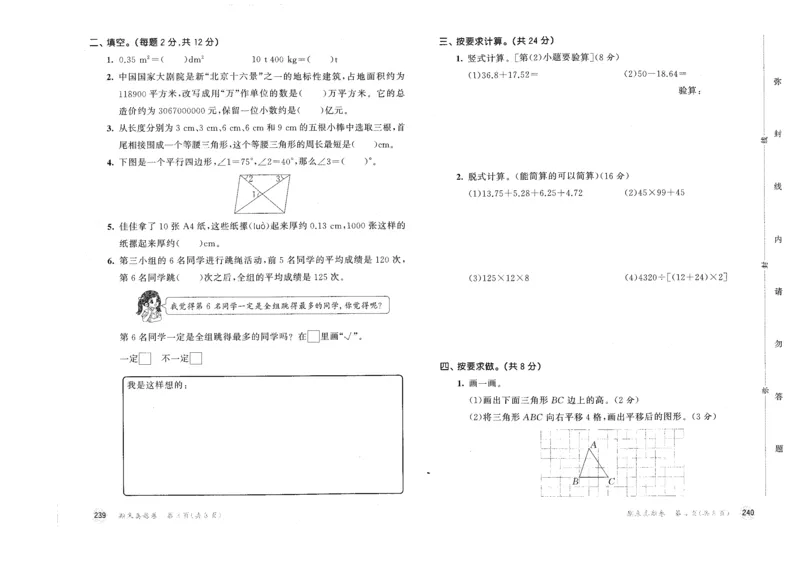 二、填空。(每题2分,共12分)
1. 0.35 m²=( )dm² 10 t 400 kg=( )t
2. 中国国家大剧院是新“北京十六景”之一的地标性建筑,占地面积约为
118900平方米,改写成用“万”作单位的数是( )万平方米。它的总
造价约为3067000000元,保留一位小数约是( )亿元。
3. 从长度分别为3 cm、3 cm、6 cm、6 cm和9 cm的五根小棒中选取三根,首
尾相接围成一个等腰三角形,这个等腰三角形的周长最短是( )cm。
4. 下图是一个平行四边形,∠1=75°,∠2=40°,那么∠3=( )°。
2 3
1
5. 佳佳拿了10张A4纸,这些纸摞(luò)起来厚约0.13 cm,1000张这样的
纸摞起来厚约( )cm。
6. 第三小组的6名同学进行跳绳活动,前5名同学的平均成绩是120次,
第6名同学跳( )次之后,全组的平均成绩是125次。
我觉得第6名同学一定是全组跳得最多的同学,你觉得呢?
第6名同学一定是全组跳得最多的同学吗?在□里画“√”。
一定□ 不一定□
我是这样想的:
239
三、按要求计算。(共24分)
1. 竖式计算。[第(2)小题要验算](8分)
(1)36.8+17.52= (2)50-18.64=
验算:
2. 脱式计算。(能简算的可以简算)(16分)
(1)13.75+5.28+6.25+4.72 (2)45×99+45
(3)125×12×8 (4)4320÷[(12+24)×2]
四、按要求做。(共8分)
1. 画一画。
(1)画出下面三角形BC边上的高。(2分)
(2)将三角形ABC向右平移4格,画出平移后的图形。(3分)
A
B C
240
弥
封
线
内
请
勿
答
题
线
封